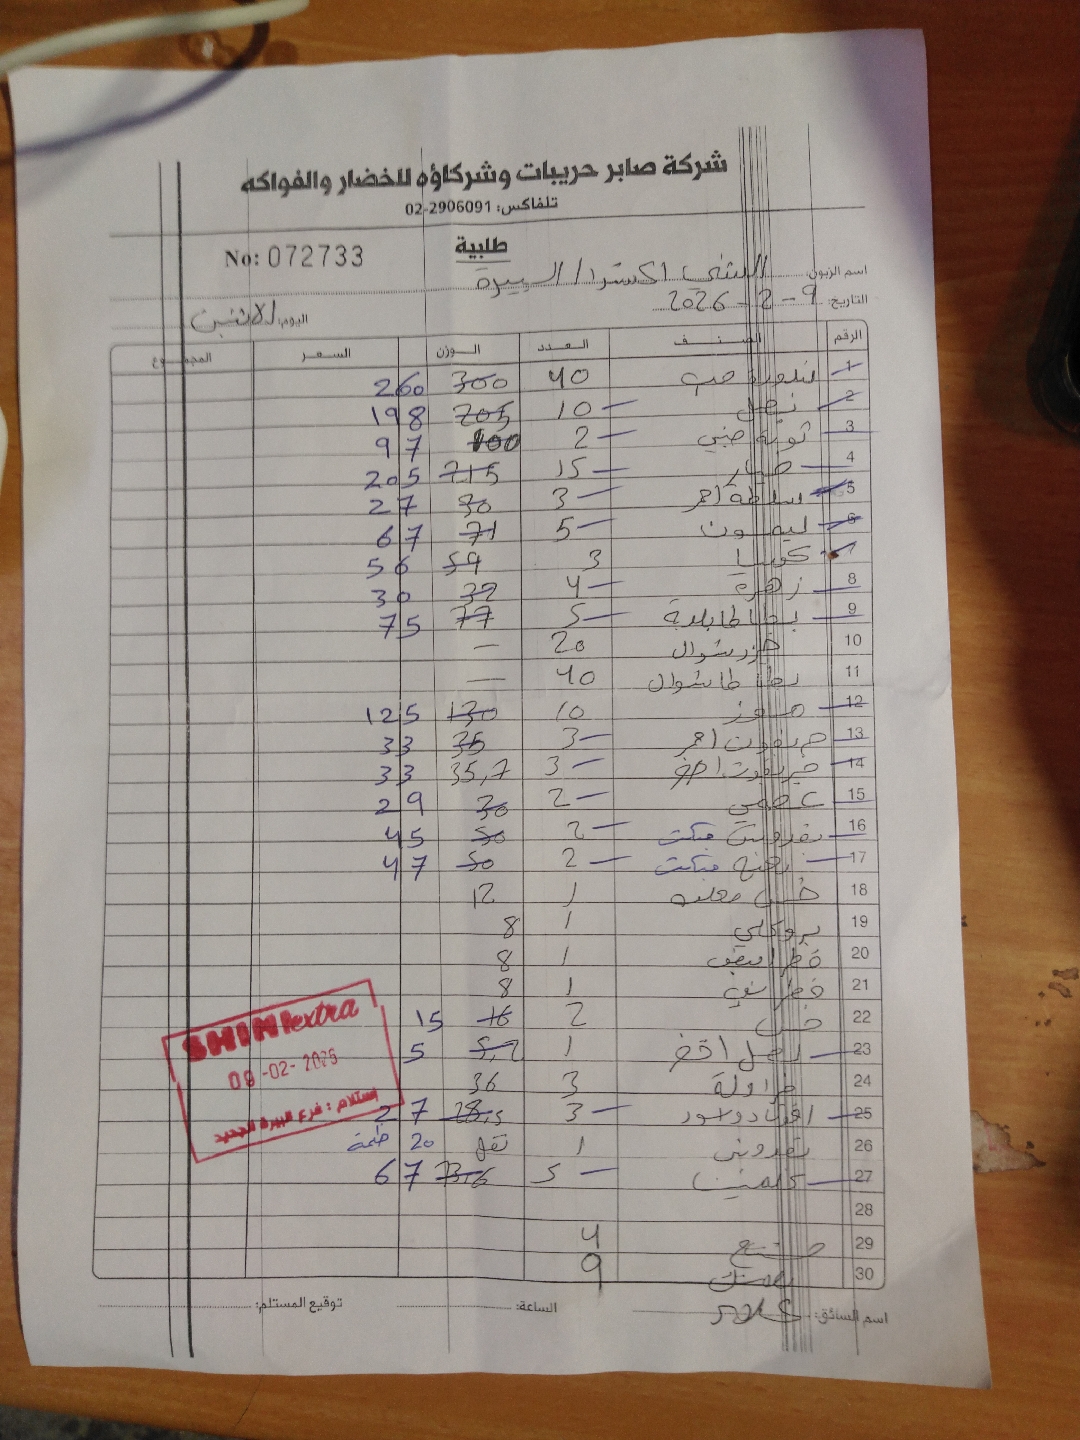 شركة صابر حريبات وشركاؤه للخضار والفواكه
تلفاكس: 02-2906091
No: 072733
طلبية
اسم الزبون: الشني اكسترا / البيرة
التاريخ: 9-2-2026
اليوم: الاثنين
الرقم الصنف العدد الوزن السعر المجموع
1 حب 40 300 260
2 بصل 10 205 198
3 2 100 97
4 خيار 15 215 205
5 احمر 3 30 27
6 ليمون 5 71 67
7 كوسا 3 59 56
8 زهرة 4 32 30
9 بطاطا بلدية 5 77 75
10 جزر شوال 20 —
11 بطاطا شوال 40 —
12 موز 10 130 125
13 احمر 3 35 33
14 3 35,7 33
15 2 30 29
16 2 50 45
17 2 50 47
18 خس 1 12
19 بروكلي 1 8
20 فطر 1 8
21 فطر 1 8
22 خس 2 16 15
23 بصل اخضر 1 5,2 5
24 فراولة 3 36
25 افوكادو اسود 3 28,5 27
26 بقدونس 1 20
27 كلمنتينا 5 73,6 67
28
29 4
30 9
SHINI extra
09-02-2026
إستلام : فرع البيرة الجديد
اسم السائق:
الساعة:
توقيع المستلم: